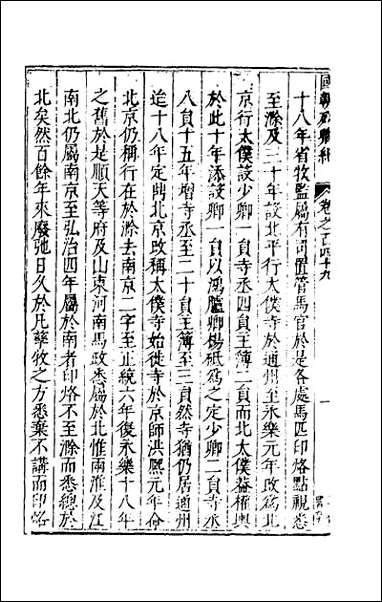 國朝列卿紀 卷之百四十九
十八年省牧監屬有司置管馬官於是各處馬匹印烙點視悉
至滁及三十年設北平行太僕寺於通州至永樂元年改為北
京行太僕設少卿一員寺丞四員主簿一員而北太僕葢權輿
於此十年添設卿一員以鴻臚卿楊砥為之定少卿二員寺丞
八員十五年增寺丞至二十員主簿至三員然寺猶仍居通州
迨十八年定鼎北京改稱太僕寺始徙寺於京師洪熙元年令
北京仍稱行在於滁去南京二字至正統六年復永樂十八年
之舊於是順天等府及山東河南馬政悉屬於北惟兩淮及江
南北仍屬南京至弘治四年屬於南者印烙不至滁而悉總於
北矣然百餘年來廢弛日久於凡孳牧之方悉棄不講而印烙
一